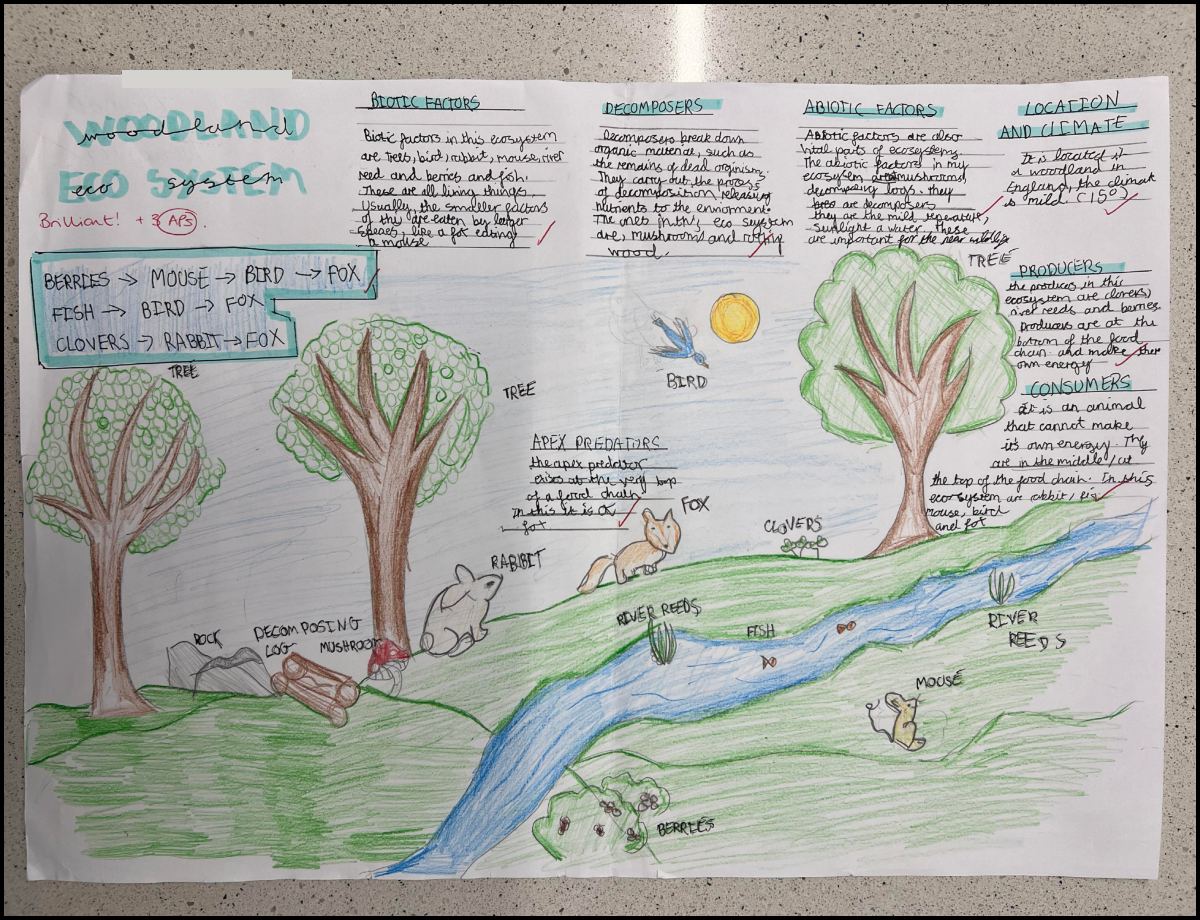 WOODLAND
woodland
ECO SYSTEM
eco system
Brilliant! + 3 APs.
BERRIES → MOUSE → BIRD → FOX
FISH → BIRD → FOX
CLOVERS → RABBIT → FOX
BIOTIC FACTORS
Biotic factors in this ecosystem
are trees, bird, rabbit, mouse, river
reed and berries and fish.
These are all living things.
Usually, the smaller factors
of the are eaten by larger
like a fox eating
a mouse
DECOMPOSERS
Decomposers break down
organic material, such as
the remains of dead
They carry out the process
of decomposition releasing
nutrients to the
The ones in this eco system
are, mushrooms and
wood.
ABIOTIC FACTORS
Abiotic factors are also
vital parts of ecosystems.
The abiotic factors in my
ecosystem mushrooms
logs. they
are decomposers
they are the mild
sunlight a water, these
are important for the
LOCATION
AND CLIMATE
It is located in
a woodland in
England, the climat
is mild. (15°)
PRODUCERS
the produces in this
ecosystem are clovers,
river reeds and berries.
producers are at the
bottom of the food
chain and make their
own energy
CONSUMERS
It is an animal
that cannot make
it's own energy. They
are in the middle / at
the top of the food chain. In this
ecosystem are rabbit,
mouse, bird
and fox
APEX PREDATORS
the apex predator
at the very top
of a food chain
In this it is a
fox
TREE
TREE
TREE
BIRD
FOX
CLOVERS
RABIBIT
ROCK
DECOMPOSING
LOG
MUSHROOM
RIVER REEDS
FISH
RIVER
REEDS
MOUSE
BERRIES